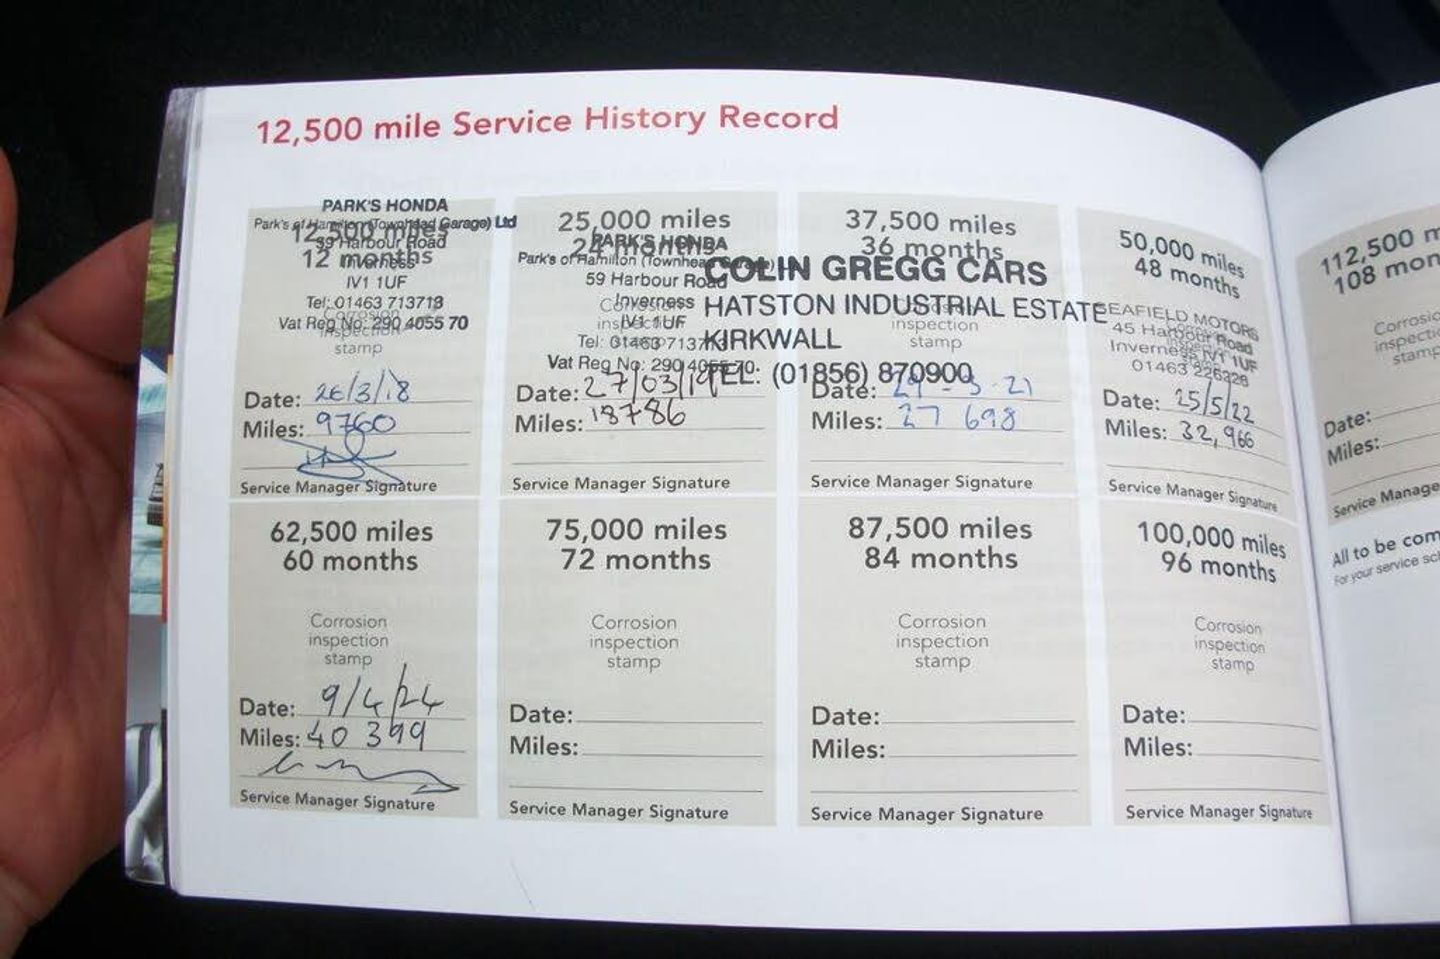 12,500 mile Service History Record
PARK'S HONDA
Park's of Hamilton (Townhead Garage) Ltd
12,500 miles
59 Harbour Road
12 months
Inverness
IV1 1UF
Tel: 01463 713713
Corrosion
Vat Reg No: 290 4055 70
inspection
stamp
Date: 26/3/18
Miles: 9760
Service Manager Signature
25,000 miles
24 months
PARK'S HONDA
Park's of Hamilton (Townhead
59 Harbour Road
Corrosion
Inverness
inspection
IV1 1UF
stamp
Tel: 01463 713713
Vat Reg No: 290 4055 70
Date: 27/03/19
Miles: 18786
Service Manager Signature
37,500 miles
36 months
COLIN GREGG CARS
HATSTON INDUSTRIAL ESTATE
Corrosion
inspection
stamp
KIRKWALL
TEL: (01856) 870900
Date: 29-3-21
Miles: 27 698
Service Manager Signature
50,000 miles
48 months
SEAFIELD MOTORS
45 Harbour Road
Inverness IV1 1UF
01463 226228
Date: 25/5/22
Miles: 32,966
Service Manager Signature
62,500 miles
60 months
Corrosion
inspection
stamp
Date: 9/4/24
Miles: 40 399
Service Manager Signature
75,000 miles
72 months
Corrosion
inspection
stamp
Date:
Miles:
Service Manager Signature
87,500 miles
84 months
Corrosion
inspection
stamp
Date:
Miles:
Service Manager Signature
100,000 miles
96 months
Corrosion
inspection
stamp
Date:
Miles:
Service Manager Signature
112,500 m
108 mon
Corrosio
inspecti
stamp
Date:
Miles:
Service Manage
All to be com
For your service sc